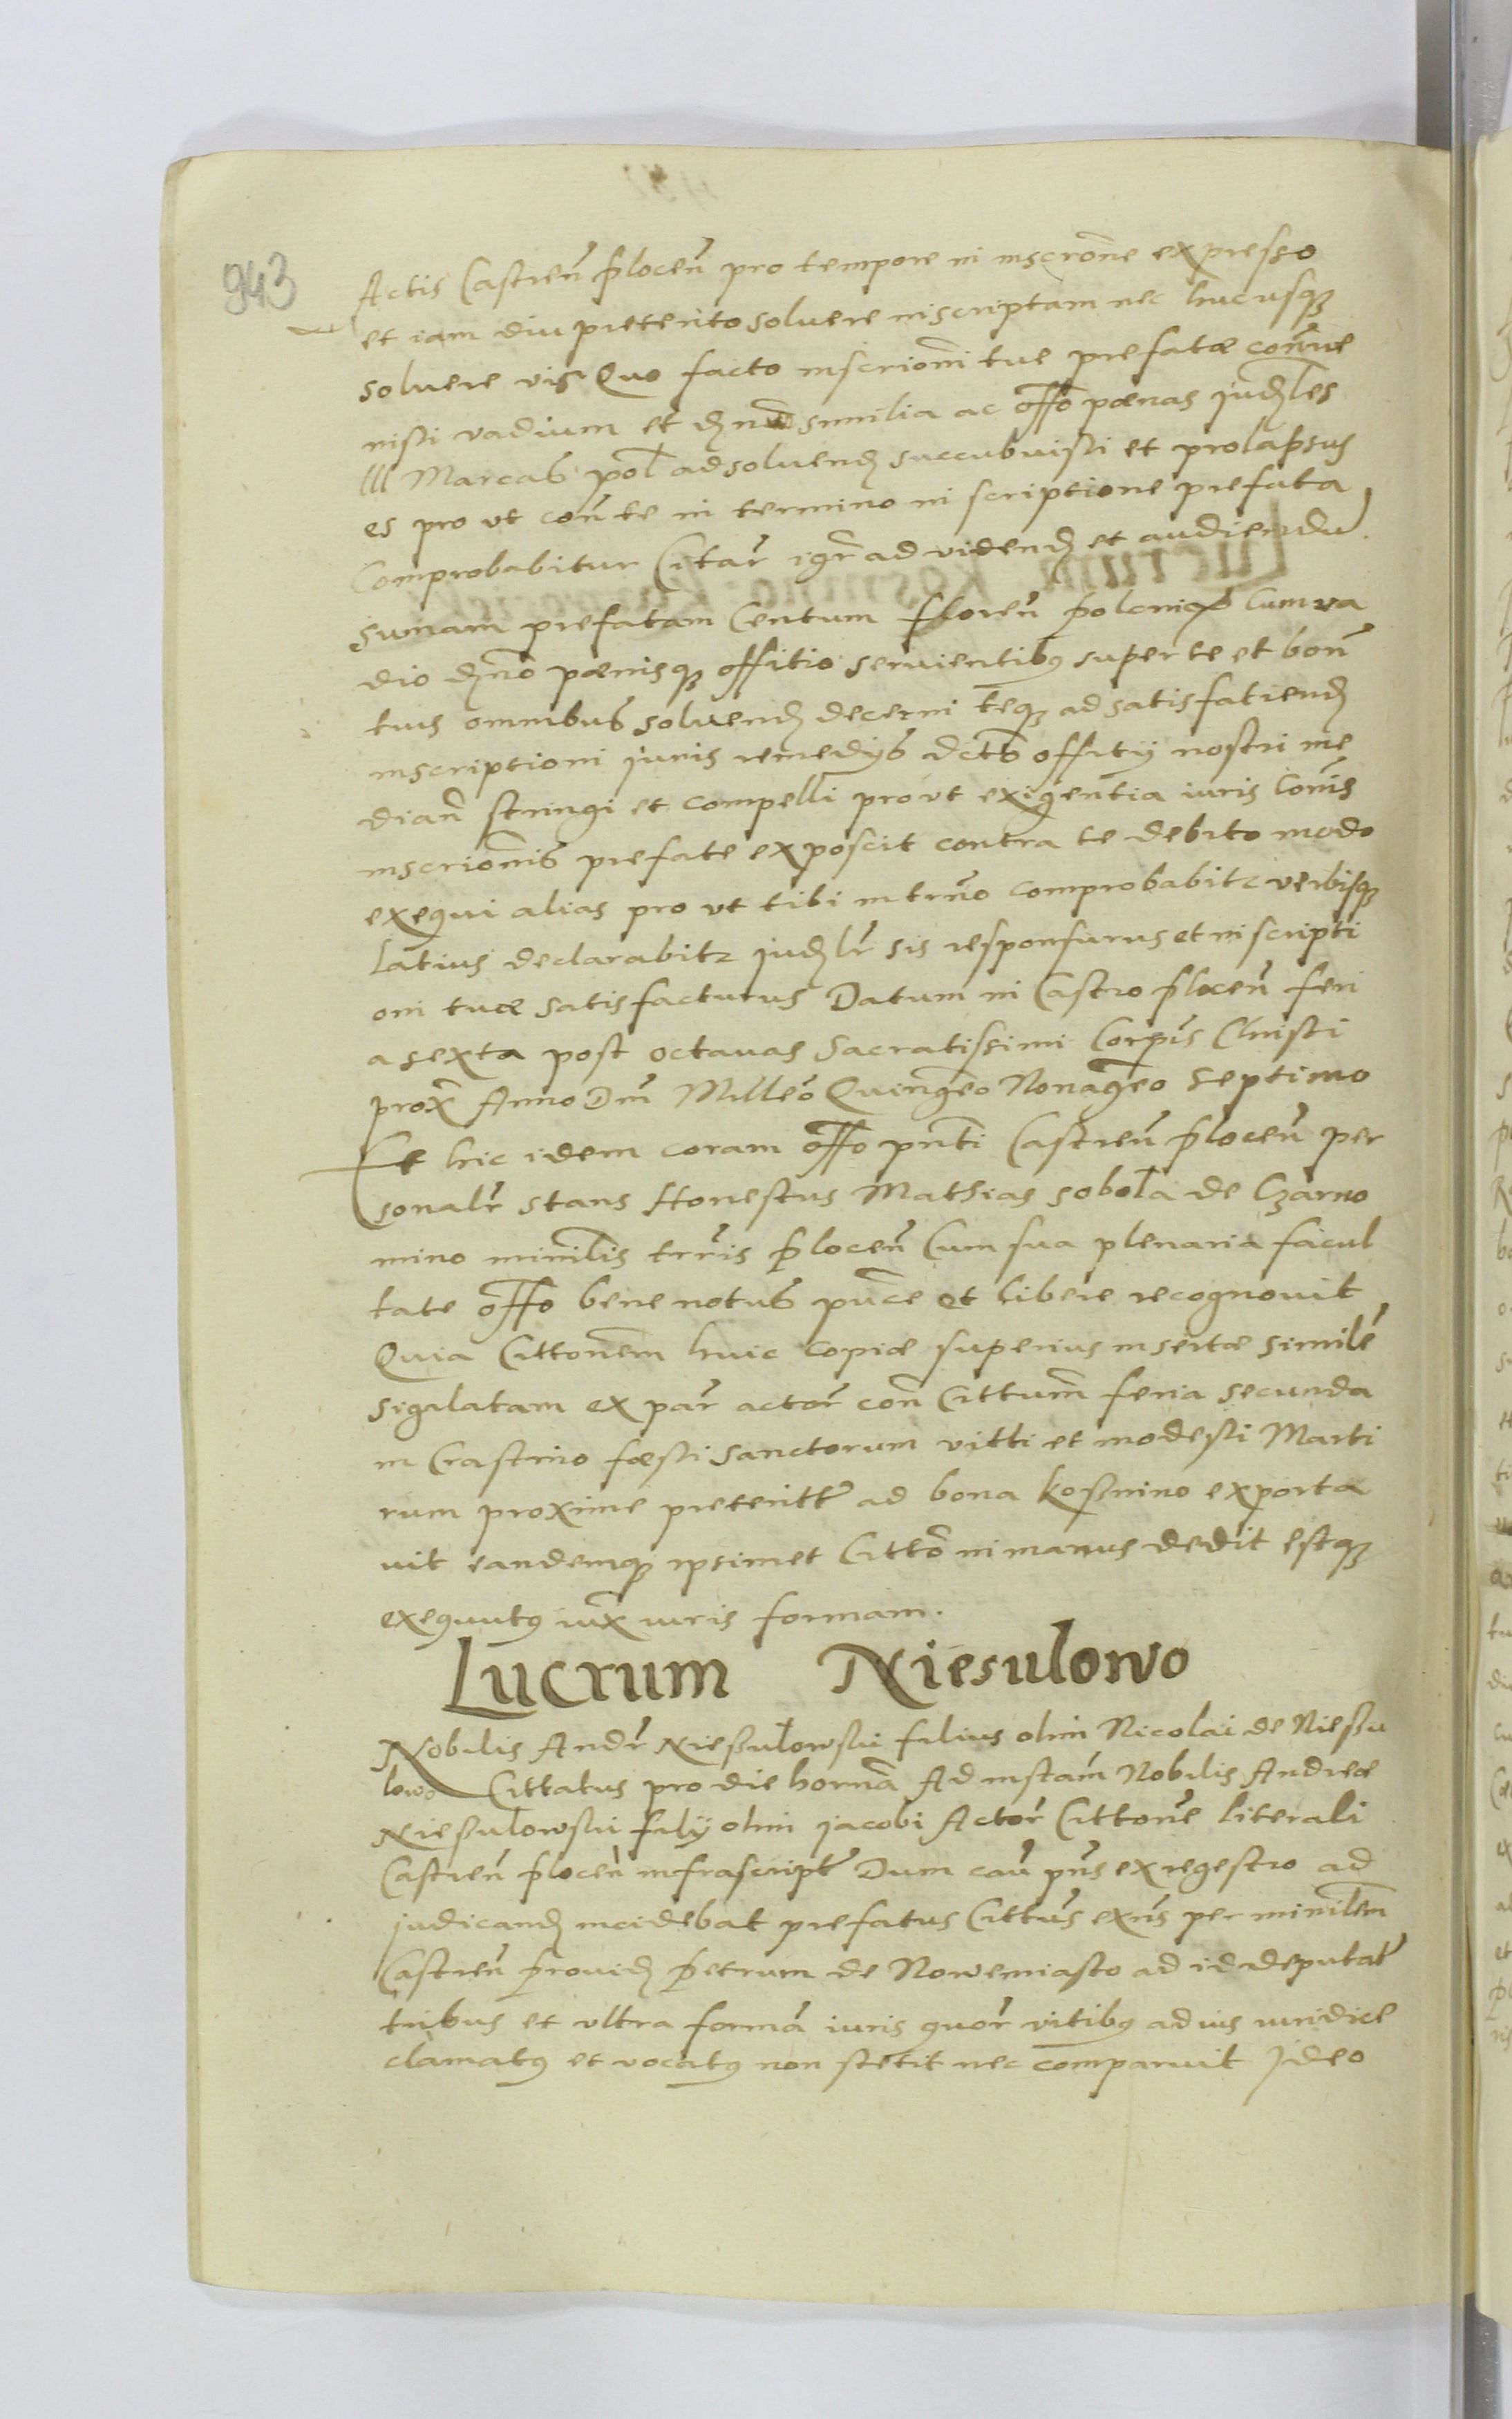 943
Actis Castren̄ plocen̄ pro tempore in inscrōne expresso
et iam diu preterito soluere inscriptam nec hucusqꝫ
soluere vis Quo facto inscriōni tue prefatæ contrave
nisti vadium et similia ac offo pœnas
III Marcas pol ad soluend succubuisti et prolapsus
es pro vt con̄ te in termino inscriptione prefata
Comprobabitur Citar igr ad vidend et audiendū
sum̄am prefatam Centum floren̄ polonical Cum va
dio pœnisqꝫ offitio seruientibꝰ super te et bon̄
tuis omnibus soluend decerni teqꝫ ad satisfatiend
inscriptioni juris remedys offitij nostri me
dian̄ stringi et compelli provt exigentia iuris Com̄is
inscriōnis prefate exposcit contra te debito modo
exequi alias pro vt tibi in trn̄o comprobabitr verbisqꝫ
latius declarabitr judlr sis responsurus et inscripti
oni tuæ satisfacturus Datum in Castro plocen̄ feri
a sexta post octauas Sacratissimi Corpis Christi
prox Anno Dni Milleo Quingeo Nonageo Septimo
Et hic idem coram offo pn̄ti Castren̄ plocen̄ per
sonalr stans Honestus Mathias sobola de Czarno
mino min̄lis trr̄is plocen̄ Cum sua plenaria facul
tate offo bene notus pu̅ce et libere recognouit
Quia Cittōnem huic copiæ superius insertæ similē
sigilatam ex par actor con̄ Cittum̄ feria secunda
in Crastino fæsti sanctorum vitti et modesti Marti
rum proxime preteritt ad bona koßmino exporta
uit eandemqꝫ ipsimet Citto in manus dedit estqꝫ
exequutꝰ iux iuris formam.
Lucrum Niesulowo
Nobilis Andr Nießulowski filius olim Nicolai de Nießu
lowo Cittatus pro die horn̄a Ad instam̄ Nobilis Andreæ
Nießulowski filij olim jacobi Actor Cittōne literali
Castren̄ plocen̄ infrascript Dum cau pn̄s ex regestro ad
judicand incidebat prefatus Cittus exn̄s per min̄lem
Castren̄ prouid petrum de Nowemiasto ad id deputat
tribus et vltra formā iuris quor vitibꝰ ad ius iuridice
clamatꝰ et vocatꝰ non stetit nec comparuit Jdeo